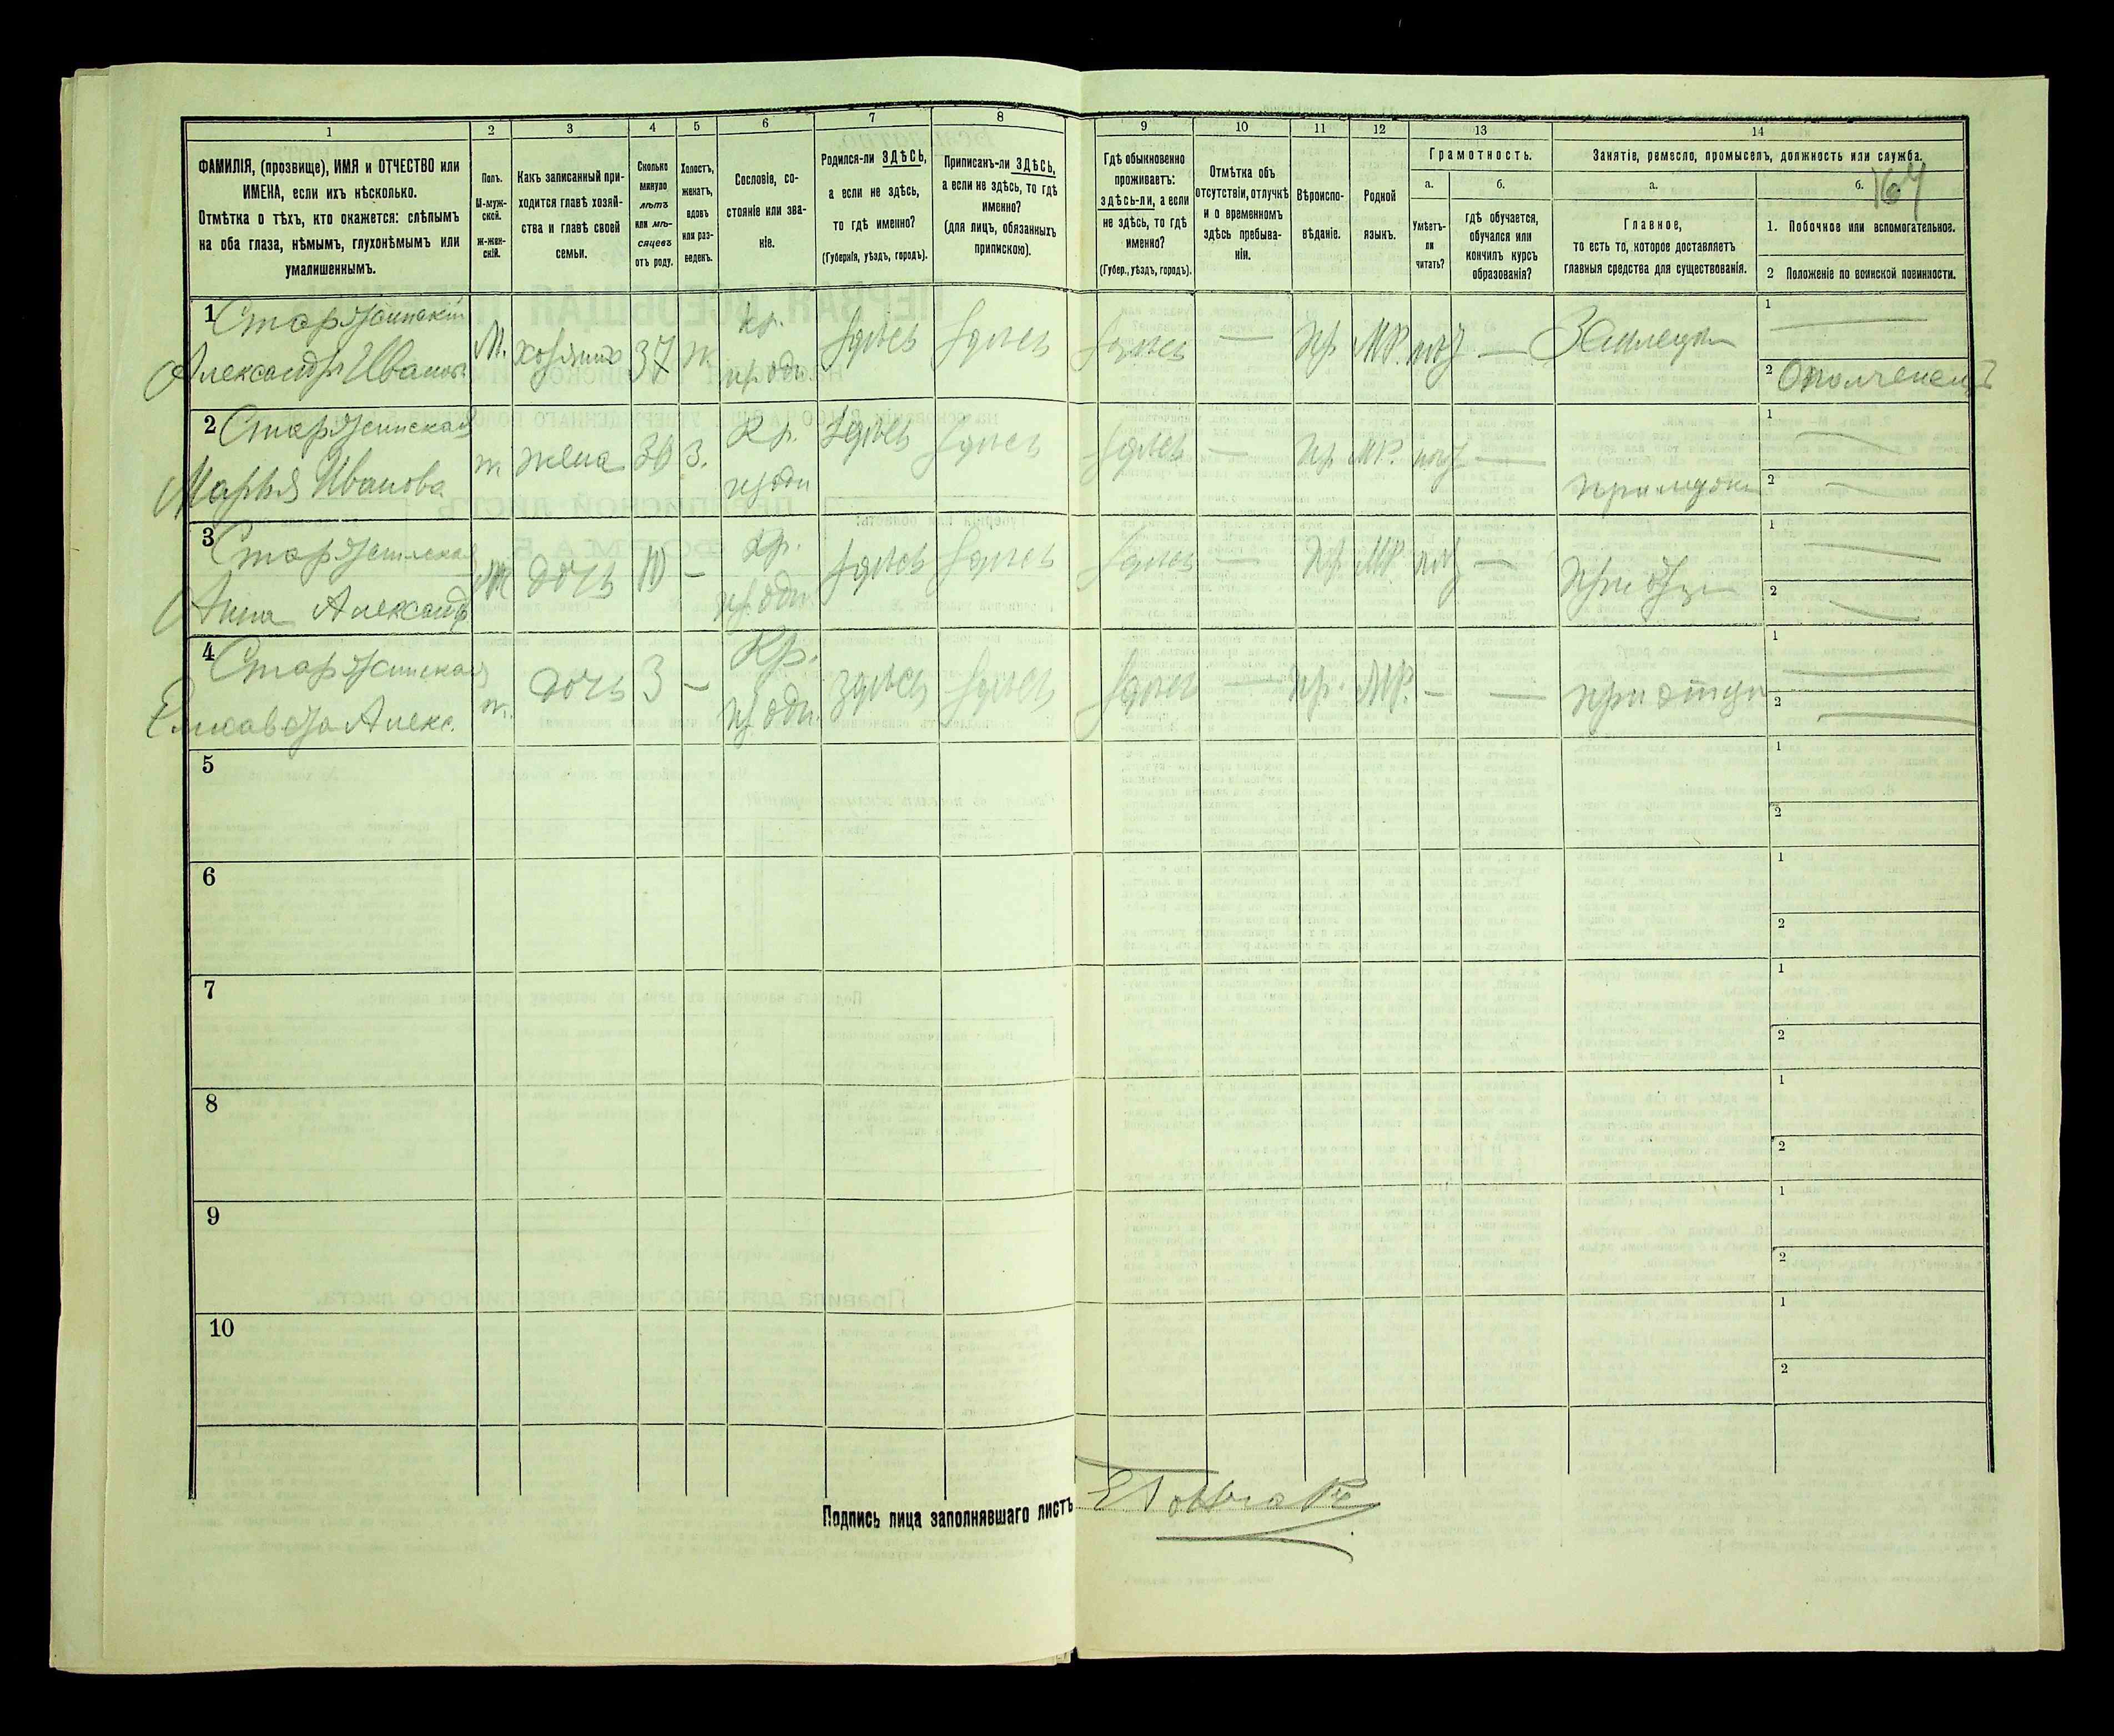 1
2
3
4
5
6
7
8
9
10
11
12
13
14
ФАМИЛІЯ, (прозвище), ИМЯ и ОТЧЕСТВО или
ИМЕНА, если ихъ нѣсколько.
Отмѣтка о тѣхъ, кто окажется: слѣпымъ
на оба глаза, нѣмымъ, глухонѣмымъ или
умалишеннымъ.
Полъ.
М-муж-
ской.
ж-жен-
скій.
Какъ записанный при-
ходится главѣ хозяй-
ства и главѣ своей
семьи.
Сколько
минуло
лѣтъ
или мѣ-
сяцевъ
отъ роду.
Холостъ,
женатъ,
вдовъ
или раз-
веденъ.
Сословіе, со-
стояніе или зва-
ніе.
Родился-ли ЗДѢСЬ,
а если не здѣсь,
то гдѣ именно?
(Губернія, уѣздъ, городъ).
Приписанъ-ли ЗДѢСЬ,
а если не здѣсь, то гдѣ
именно?
(для лицъ, обязанныхъ
припискою).
Гдѣ обыкновенно
проживаетъ:
здѣсь-ли, а если
не здѣсь, то гдѣ
именно?
(Губер., уѣздъ, городъ).
Отмѣтка объ
отсутствіи, отлучкѣ
и о временномъ
здѣсь пребыва-
ніи.
Вѣроиспо-
вѣданіе.
Родной
языкъ.
Грамотность.
а.
б.
Умѣетъ-
ли
читать?
гдѣ обучается,
обучался или
кончилъ курсъ
образованія?
Занятіе, ремесло, промыселъ, должность или служба.
а.
б.
164
Главное,
то есть то, которое доставляетъ
главныя средства для существованія.
1. Побочное или вспомогательное.
2 Положеніе по воинской повинности.
1
Александръ Иванов.
М.
хозяинъ
37
ж
кр.
здѣсь
здѣсь
здѣсь
—
пр
МР.
—
1
—
2 Ополченецъ
2
Марья Иванова
ж
жена
30
з.
Кр.
здѣсь
здѣсь
здѣсь
—
пр
МР.
—
1
—
2
—
3
Анна Александр
ж
дочь
10
—
Кр.
здѣсь
здѣсь
здѣсь
—
пр
МР.
—
При отцѣ
1
—
2
—
4
Елисавета Алекс.
ж.
дочь
3
—
Кр.
здѣсь
здѣсь
здѣсь
—
пр.
МР.
—
—
при отцѣ
1
—
2
—
5
1
2
6
1
2
7
1
2
8
1
2
9
1
2
10
1
2
Подпись лица заполнявшаго листъ